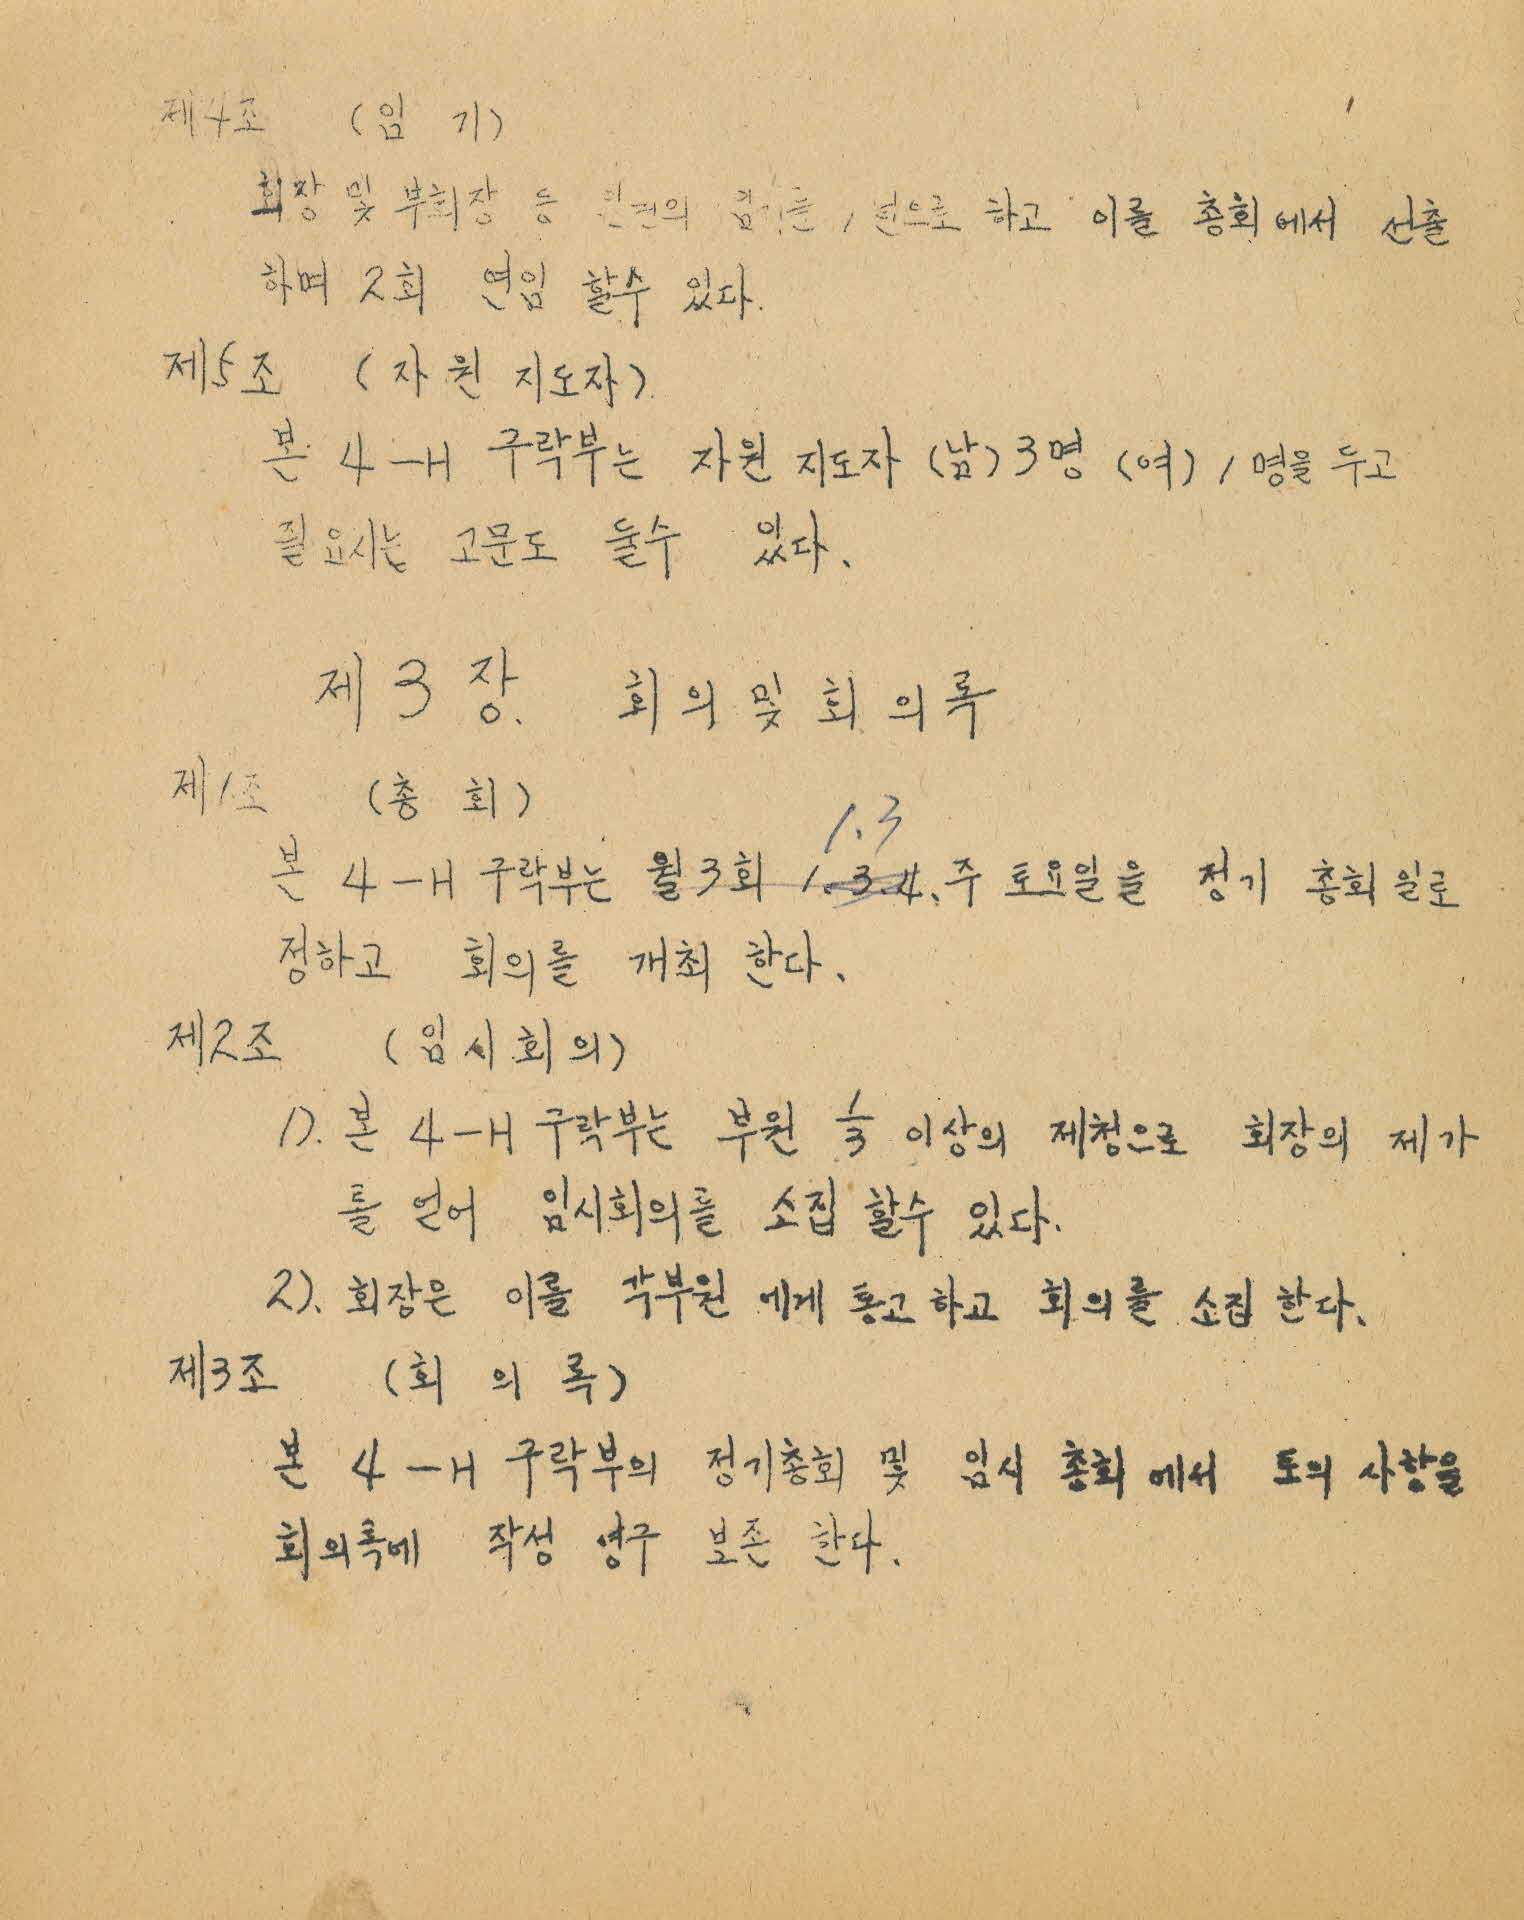 제4조 (임 기)
회장 및 부회장 등 임원의 임기를 1년으로 하고 이를 총회에서 선출
하며 2회 연임 할수 있다.
제5조 (자원 지도자)
본 4-H 구락부는 자원 지도자 (남) 3명 (여) 1명을 두고
필요시는 고문도 둘수 있다.
제 3 장. 회의 및 회의록
제1조 (총 회)
1.3
본 4-H 구락부는 월3회 1.3.4.주 토요일을 정기 총회일로
정하고 회의를 개최 한다.
제2조 (임시회의)
1). 본 4-H 구락부는 부원 1/3 이상의 제청으로 회장의 제가
를 얻어 임시회의를 소집 할수 있다.
2). 회장은 이를 각부원 에게 통고하고 회의를 소집 한다.
제3조 (회 의 록)
본 4-H 구락부의 정기총회 및 임시 총회에서 토의 사항을
회의록에 작성 영구 보존 한다.